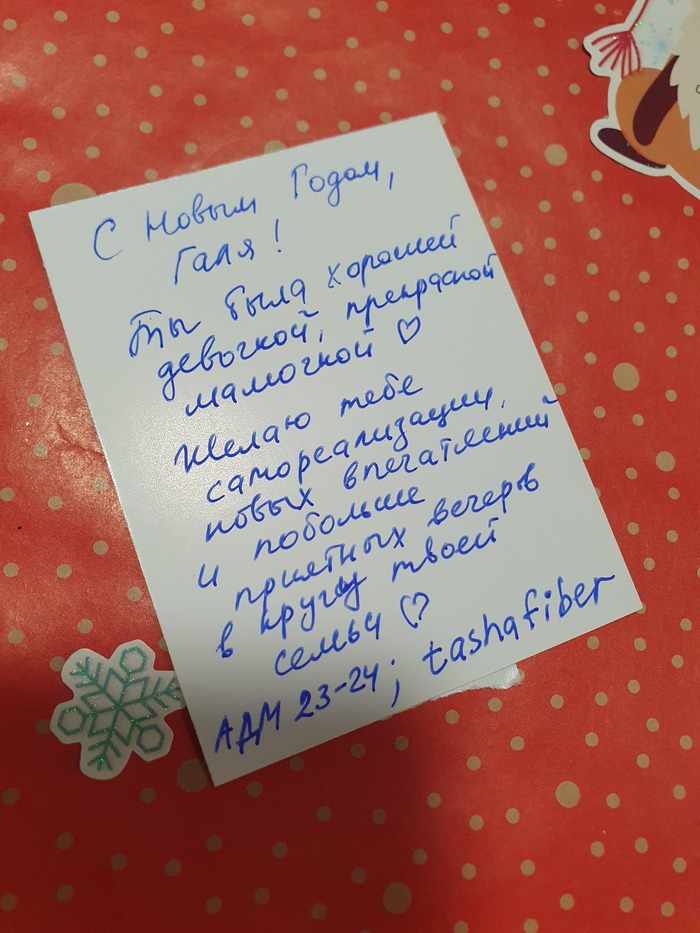 С Новым Годом,
Галя!
Ты была хорошей
девочкой, прекрасной
мамочкой ♡
Желаю тебе
самореализации,
новых впечатлений
и побольше
приятных вечеров
в кругу твоей
семьи ♡
АДМ 23-24; tashafiber